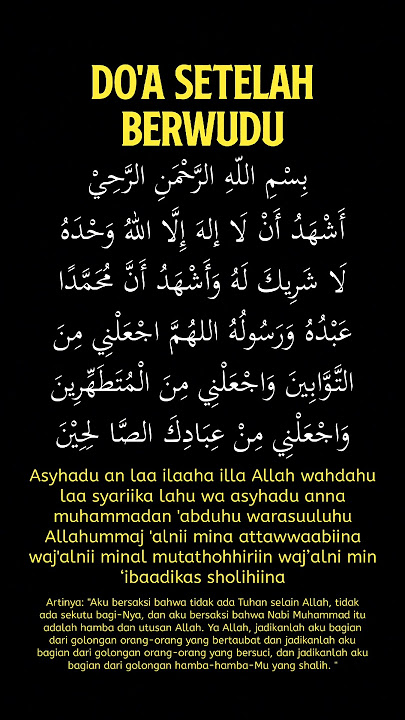 DO'A SETELAH
BERWUDU
بِسْمِ اللّهِ الرَّحْمَنِ الرَّحِيْ
أَشْهَدُ أَنْ لَا إلهَ إِلَّا اللهُ وَحْدَهُ
لَا شَرِيكَ لَهُ وَأَشْهَدُ أَنَّ مُحَمَّدًا
عَبْدُهُ وَرَسُولُهُ اللهُمَّ اجْعَلْنِي مِنَ
التَّوَّابِينَ وَاجْعَلْنِي مِنَ الْمُتَطَهِّرِينَ
وَاجْعَلْنِي مِنْ عِبَادِكَ الصَّا لِحِيْنَ
Asyhadu an laa ilaaha illa Allah wahdahu
laa syariika lahu wa asyhadu anna
muhammadan 'abduhu warasuuluhu
Allahummaj 'alnii mina attawwaabiina
waj'alnii minal mutathohhiriin waj’alni min
‘ibaadikas sholihiina
Artinya: "Aku bersaksi bahwa tidak ada Tuhan selain Allah, tidak
ada sekutu bagi-Nya, dan aku bersaksi bahwa Nabi Muhammad itu
adalah hamba dan utusan Allah. Ya Allah, jadikanlah aku bagian
dari golongan orang-orang yang bertaubat dan jadikanlah aku
bagian dari golongan orang-orang yang bersuci, dan jadikanlah aku
bagian dari golongan hamba-hamba-Mu yang shalih. "